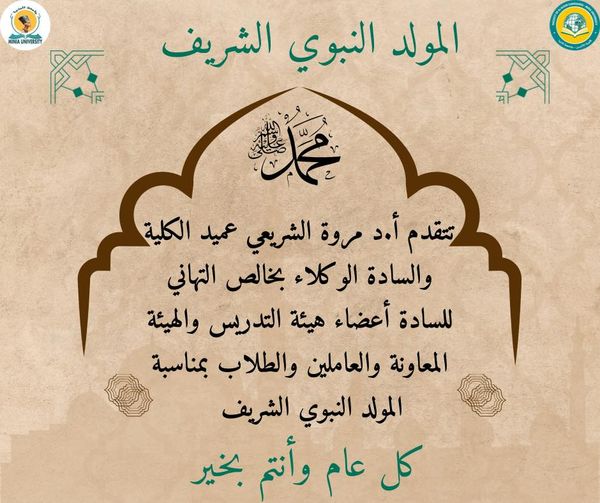 MINIA UNIVERSITY
المولد النبوي الشريف
محمد
صلى الله عليه وسلم
تتقدم أ.د مروة الشريعي عميد الكلية
والسادة الوكلاء بخالص التهاني
للسادة أعضاء هيئة التدريس والهيئة
المعاونة والعاملين والطلاب بمناسبة
المولد النبوي الشريف
كل عام وأنتم بخير